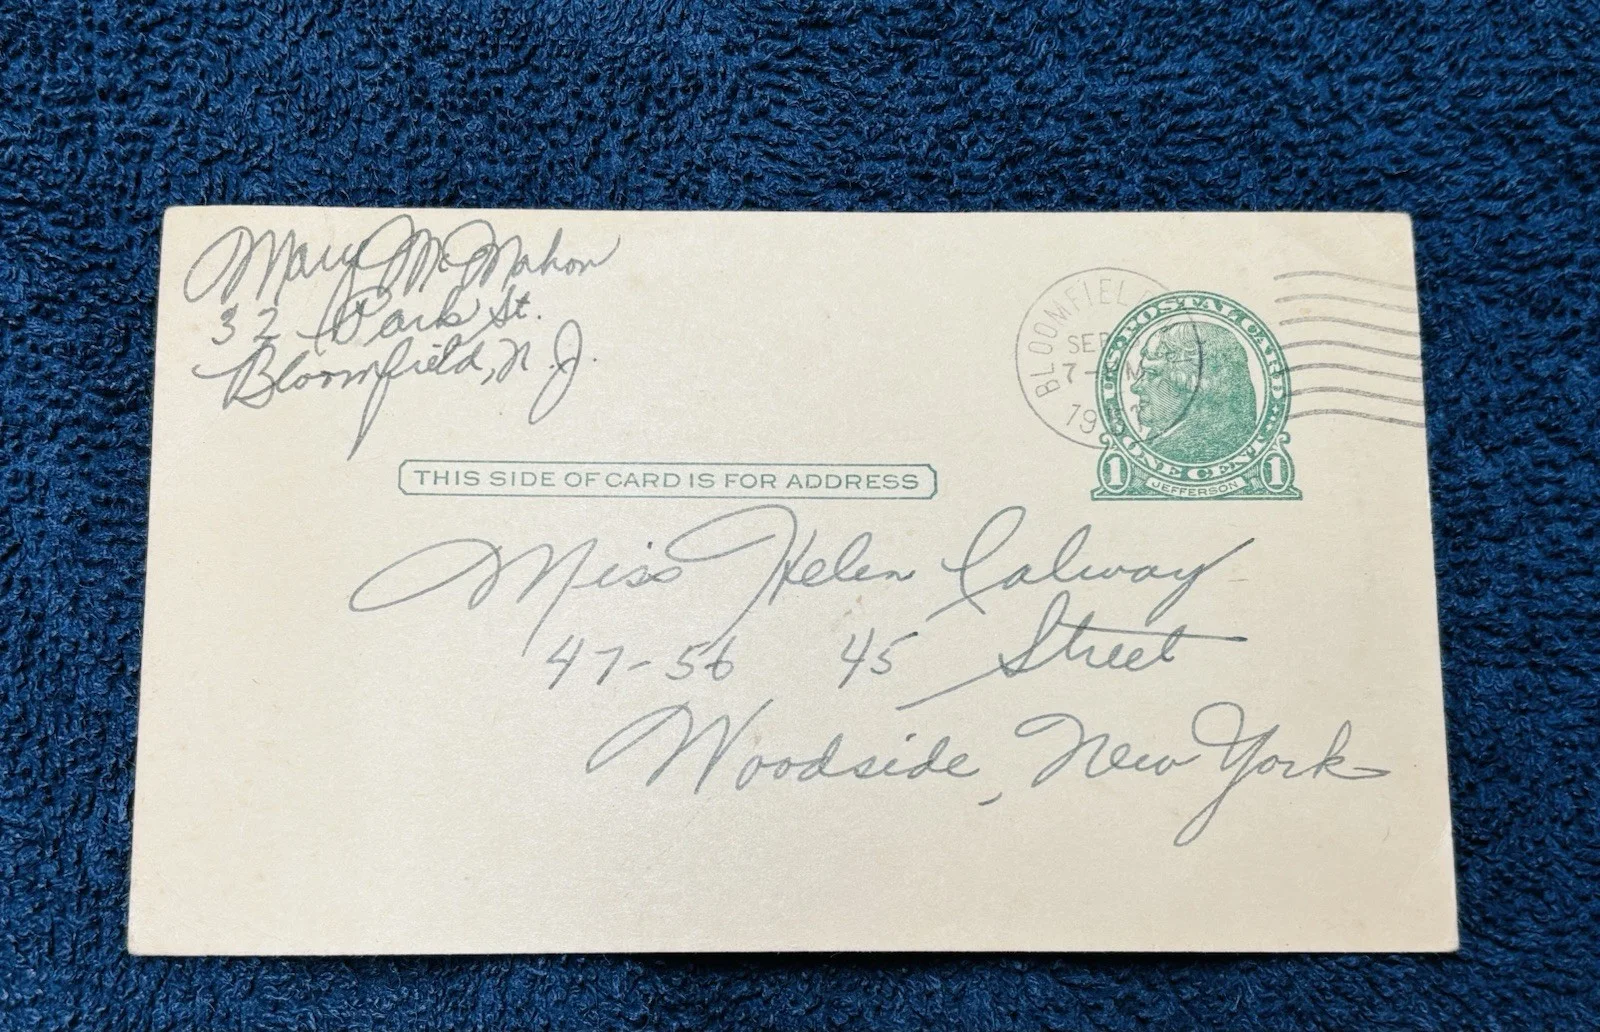 Mary McMahon
32 Park St.
Bloomfield, N.J.
BLOOMFIEL
SEP
7-
M
19
U.S. POSTAL CARD
ONE CENT
1 JEFFERSON 1
THIS SIDE OF CARD IS FOR ADDRESS
Miss Helen Calway
47-56 45 Street
Woodside, New York